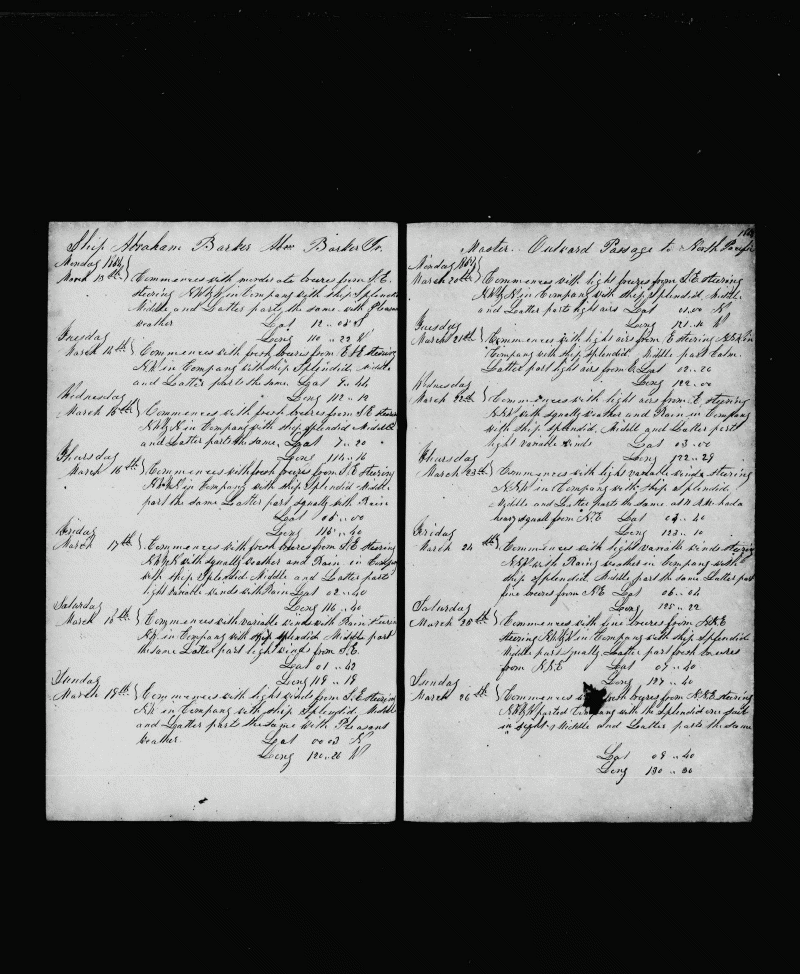 Ship Abraham Barker Abm Barker Jr.
Monday 1865
March 13th } Commences with moderate breezes from S.E.
steering N.W.N in Company with ship Splendid
Middle and Latter parts the same with Pleasant
weather Lat 12 .. 08 S
Tuesday Long 110 .. 22 W
March 14th } Commences with fresh breezes from E steering
N.W. in Company with ship Splendid. Middle
and Latter parts the same. Lat 9 .. 44
Wednesday Long 112 .. 12
March 15th } Commences with fresh breezes from S.E steering
N.W.N in Company with ship Splendid Middle
and Latter parts the same, Lat 7 .. 20
Thursday Long 114 .. 16
March 16th } Commences with fresh breezes from S.E steering
N.W.N in Company with ship Splendid Middle
part the same Latter part squally with Rain
Lat 05 .. 00
Friday Long 115 .. 40
March 17th } Commences with fresh breezes from S.E steering
N.W.N with squally weather and Rain in Company
with ship Splendid Middle and Latter parts
light variable winds with Rain Lat 02 .. 40
Saturday Long 116 .. 40
March 18th } Commences with variable winds with Rain steering
N.W. in Company with ship Splendid Middle part
the same Latter part light winds from S.E.
Lat 01 .. 42
Sunday Long 118 .. 18
March 19th } Commences with light winds from S.E steering
N.W. in Company with ship Splendid, Middle
and Latter parts the same with Pleasant
weather. Lat 00 03 N
Long 120 .. 26 W
Master.. Outward Passage to North Pacific
Monday 1865
March 20th } Commences with light breezes from S.E steering
N.W.N in Company with ship Splendid. Middle
and Latter parts light airs Lat 01.00 N
Tuesday Long 121.10 W
March 21st } Commences with light airs from E steering N.N.W in
Company with ship Splendid Middle part Calm.
Latter part light airs from Lat 12 .. 20
Wednesday Long 122 .. 00
March 22nd } Commences with light airs from E steering
N.N.W with squally weather and Rain in Company
with ship Splendid, Middle and Latter parts
light variable winds Lat 03 .. 00
Thursday Long 122 .. 29
March 23rd } Commences with light variable winds steering
N.N.W in Company with ship Splendid
Middle and Latter parts the same at 4 AM had a
heavy squall from N.E Lat 04 .. 40
Friday Long 123 .. 10
March 24th } Commences with light variable winds steering
N.N.W with Rainy weather in Company with
ship Splendid. Middle part the same Latter part
fine breezes from N.E Lat 06 .. 04
Saturday Long 125 .. 22
March 25th } Commences with fine breezes from N.N.E
steering N.W.W in Company with ship Splendid
Middle part squally Latter part fresh breezes
from N.N.E Lat 07 .. 40
Sunday Long 127 .. 40
March 26th } Commences with fresh breezes from N.N.E steering
N.W.W parted Company with the Splendid one sail
in sight Middle and Latter parts the same
Lat 09 .. 40
Long 130 .. 30